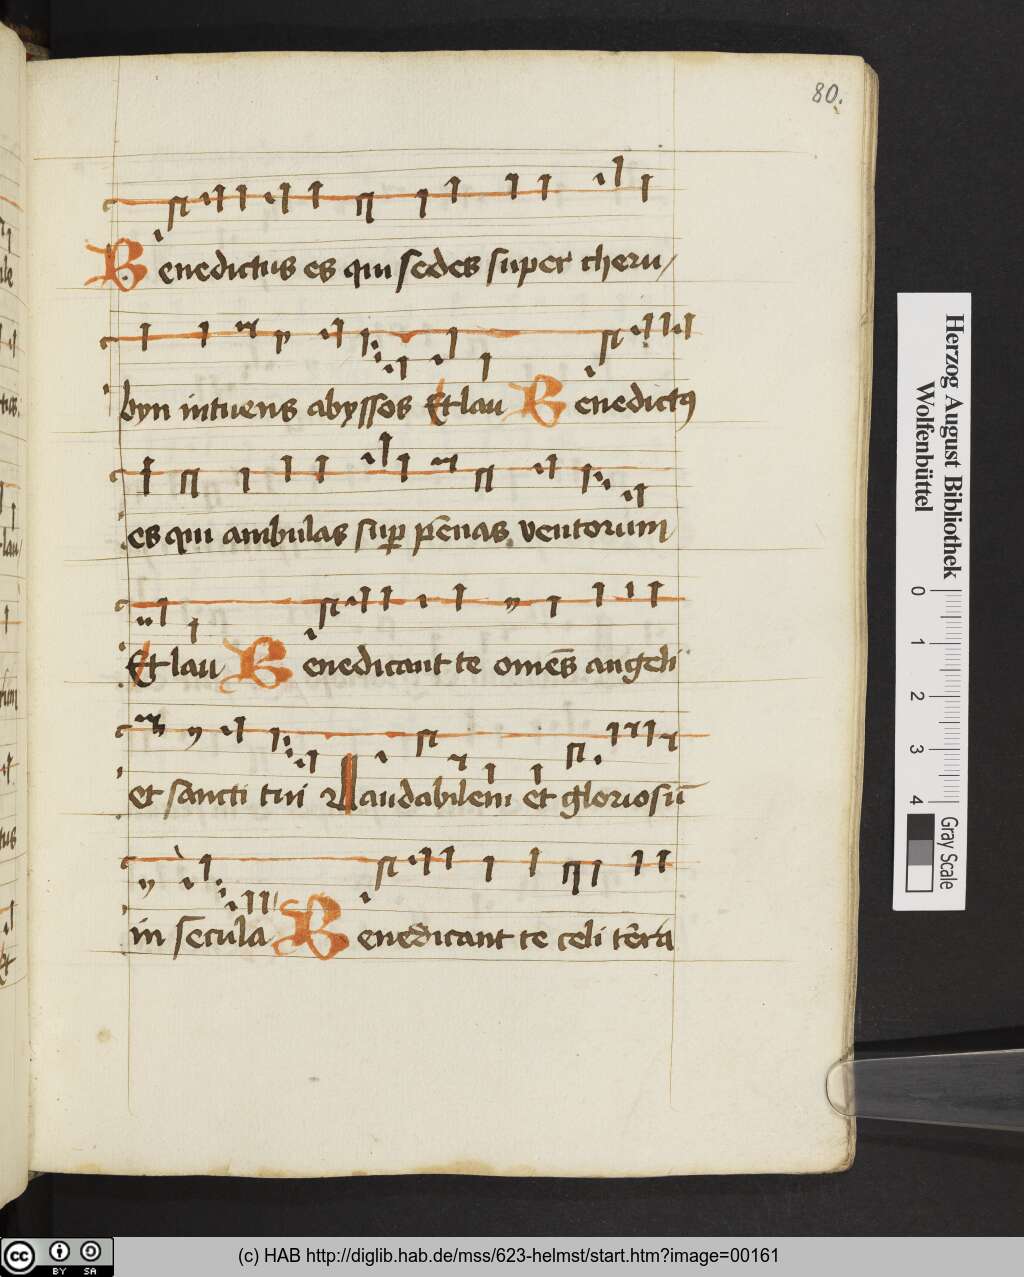 80.
Benedictus es qui sedes super cheru/
byn intuens abyssos Et lau Benedictꝯ
es qui ambulas suꝑ pēnas ventorum
Et lau Benedicant te om̄es angeli
et sancti tui Laudabilem et gloriosū
in secula Benedicant te celi tēra
Herzog August Bibliothek
Wolfenbüttel
0 1 2 3 4
Gray Scale
cc BY SA
(c) HAB http://diglib.hab.de/mss/623-helmst/start.htm?image=00161